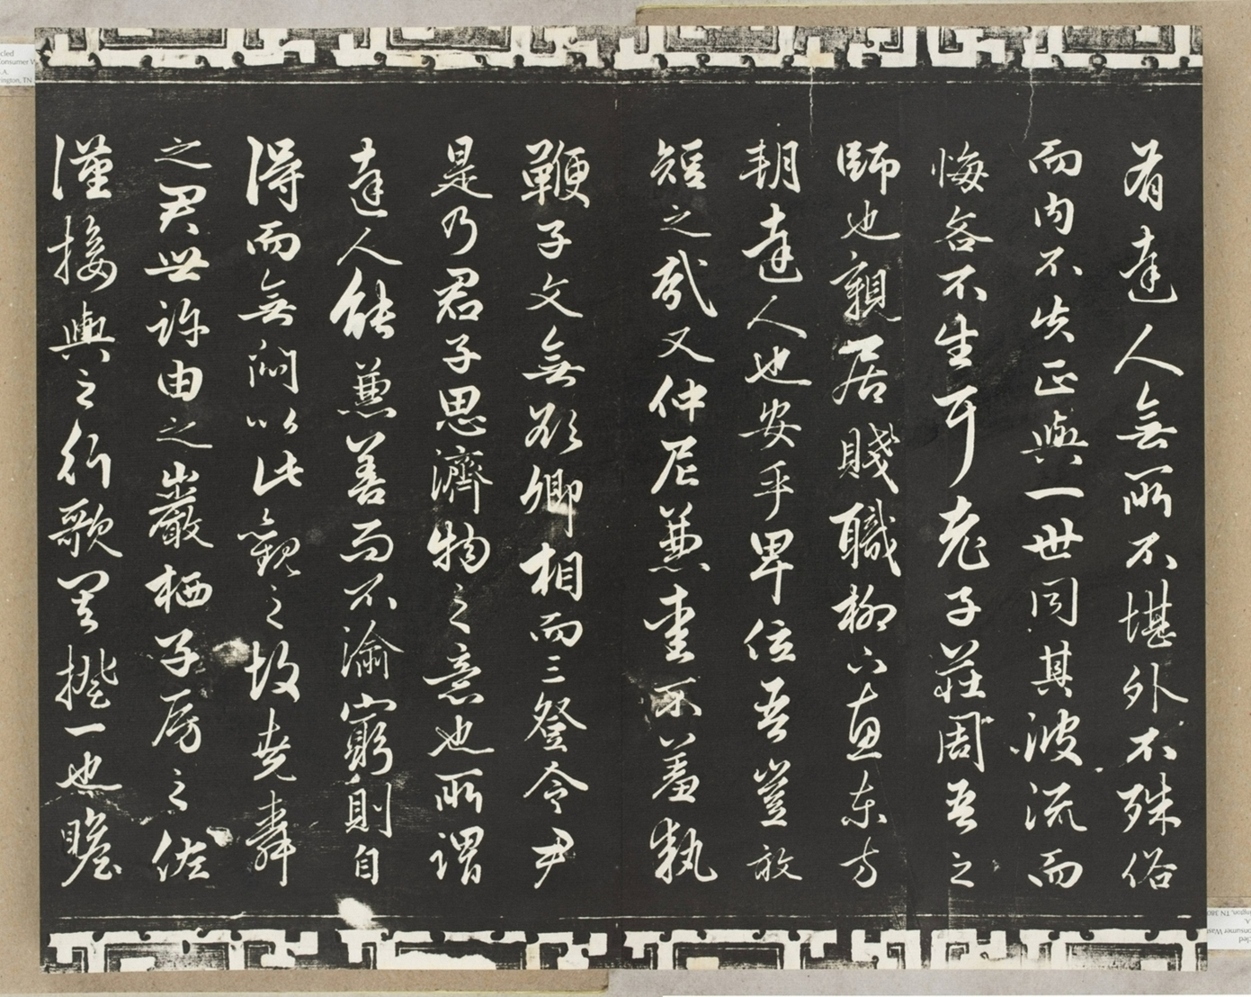 有達人無所不堪外不殊俗
而內不失正與一世同其波流而
悔吝不生耳老子莊周吾之
師也親居賤職柳下惠東方
朔達人也安乎卑位吾豈敢
短之哉又仲尼兼愛不羞執
鞭子文無欲卿相而三登令尹
是乃君子思濟物之意也所謂
達人能兼善而不渝窮則自
得而無悶以此觀之故堯舜
之君世許由之巖栖子房之佐
漢接輿之行歌其揆一也瞻
cled
onsumer W
.A.
ington, TN